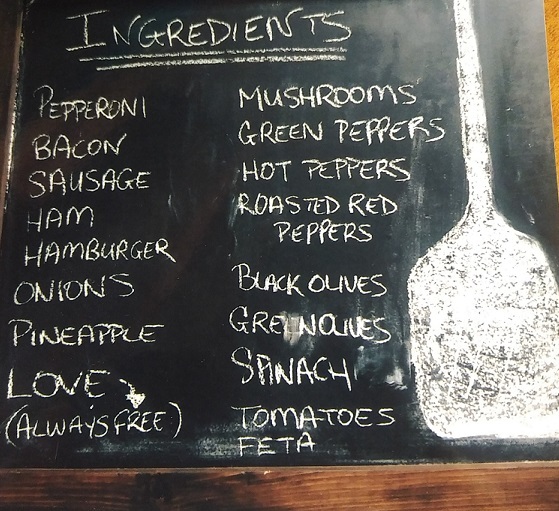 INGREDIENTS
PEPPERONI
BACON
SAUSAGE
HAM
HAMBURGER
ONIONS
PINEAPPLE
LOVE
(ALWAYS FREE)
MUSHROOMS
GREEN PEPPERS
HOT PEPPERS
ROASTED RED
PEPPERS
BLACK OLIVES
GREEN OLIVES
SPINACH
TOMATOES
FETA